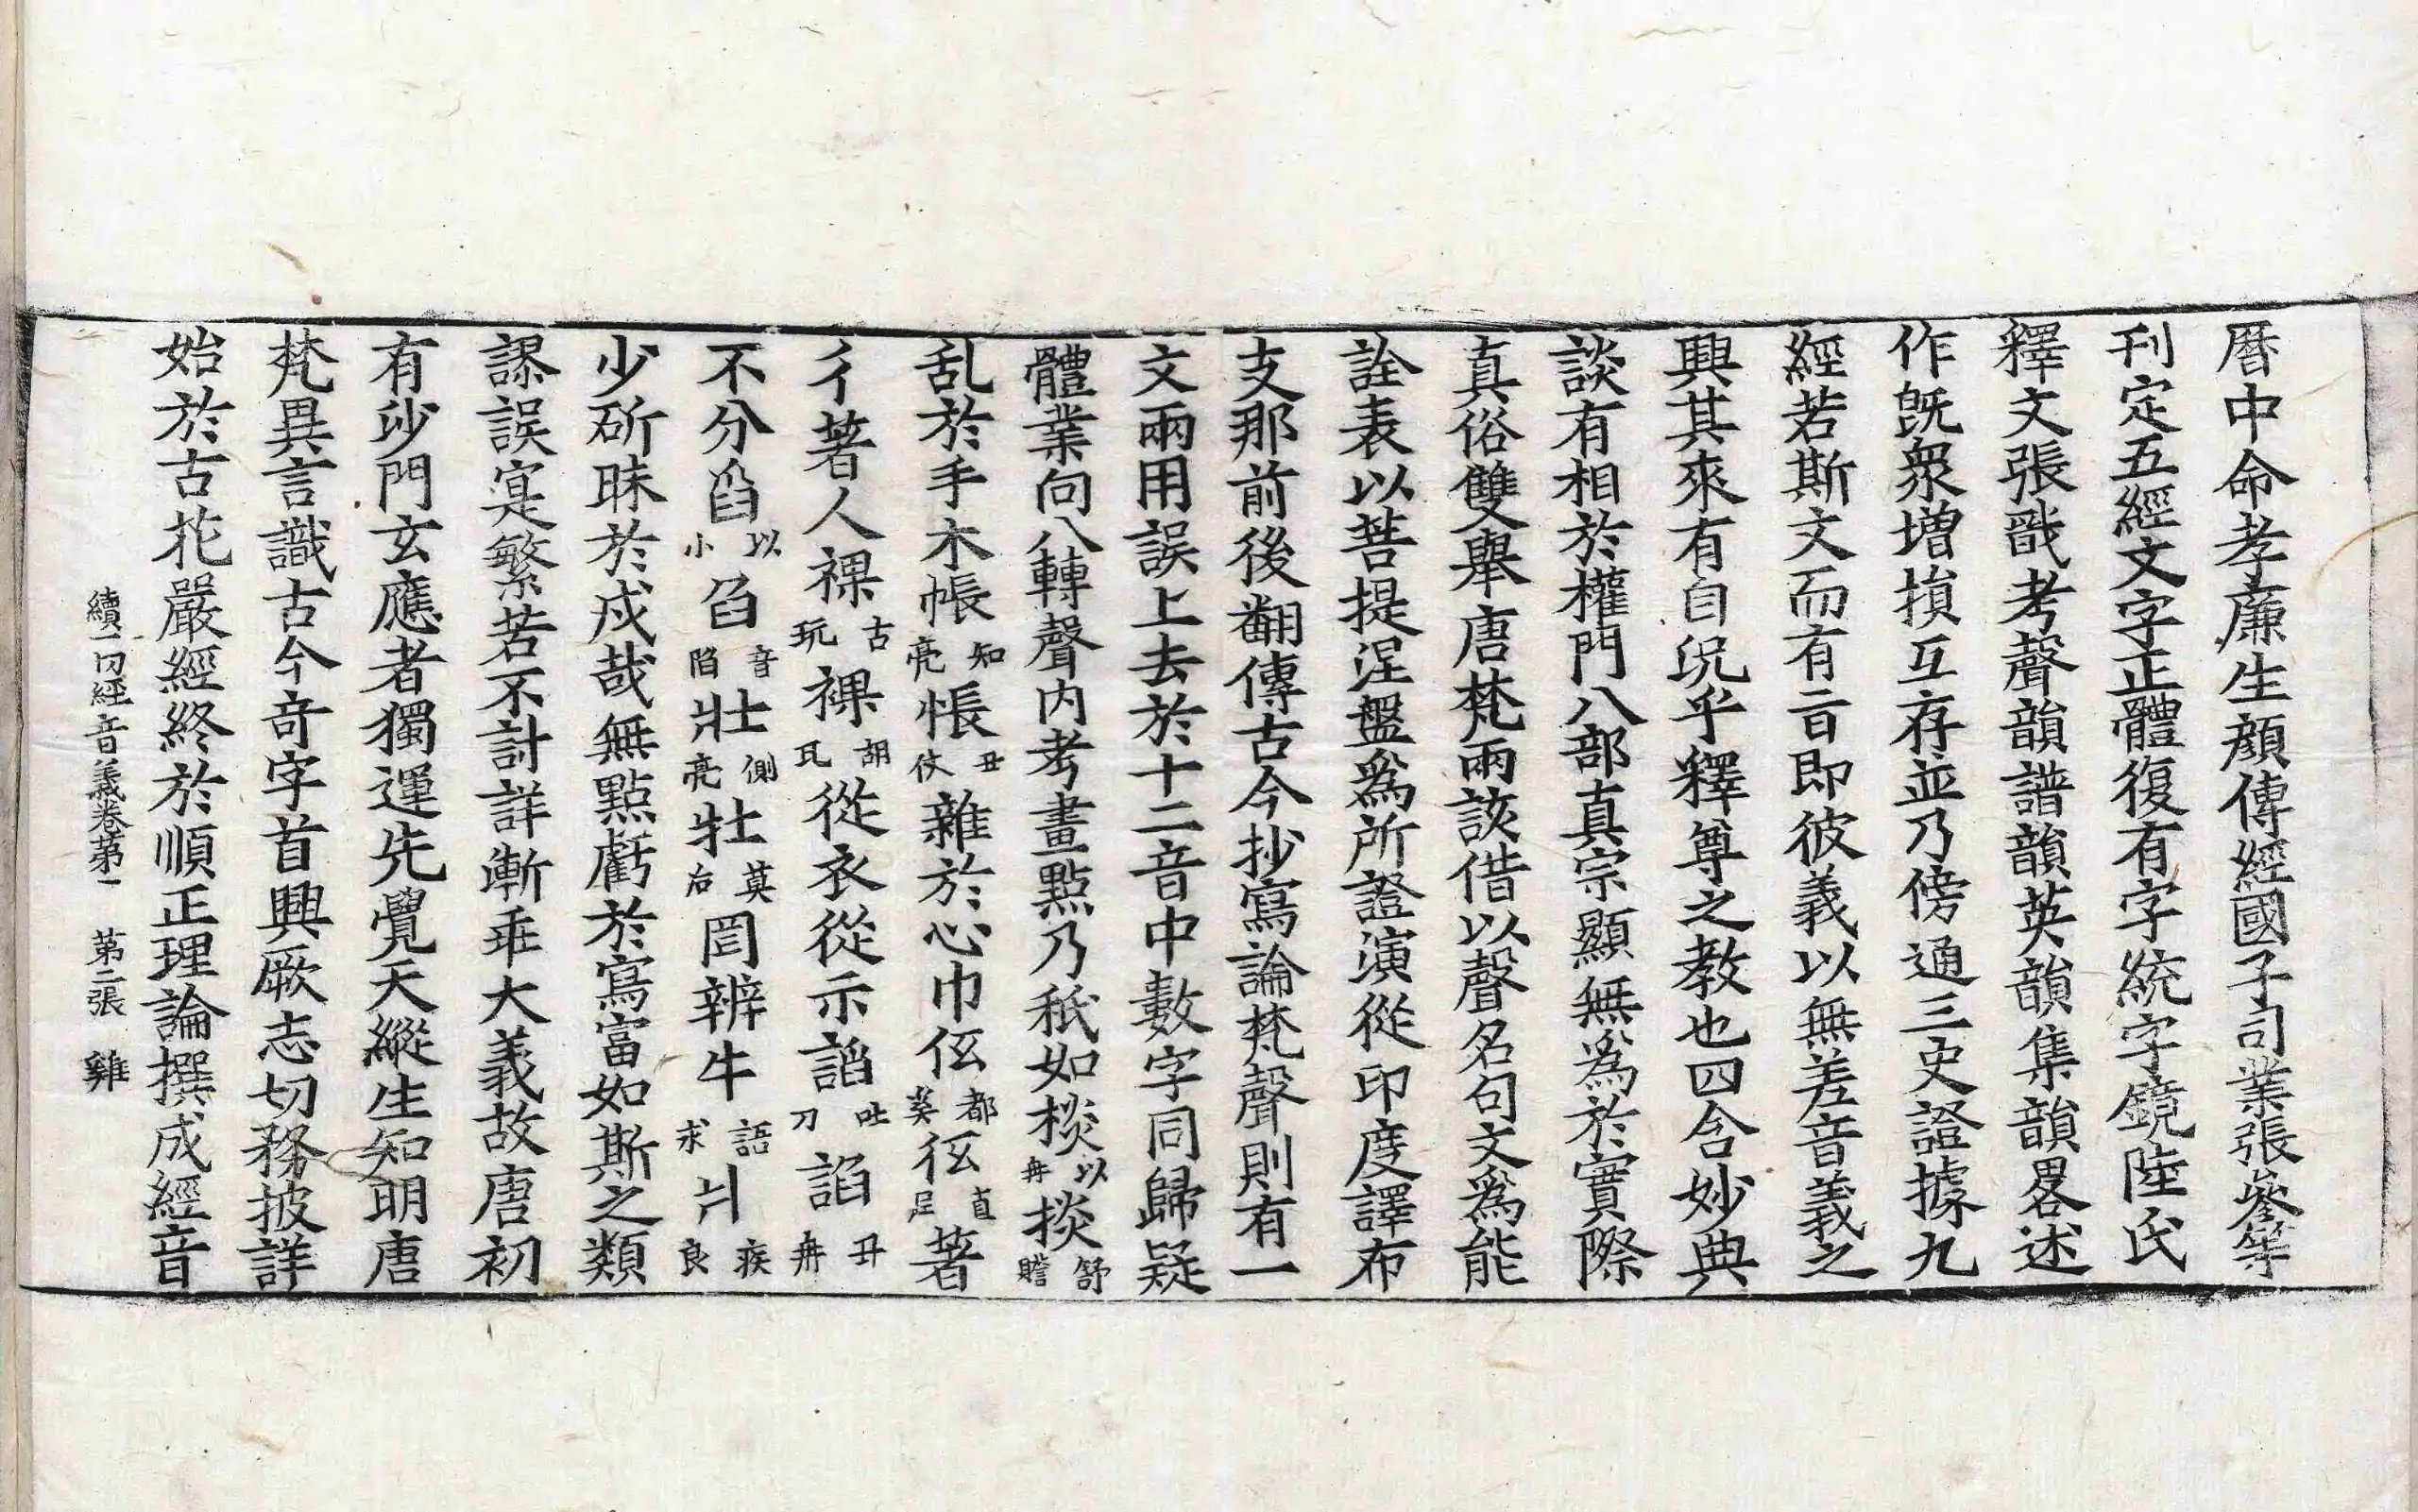 曆中命孝廉生顔傳經國子司業張參等
刊定五經文字正體復有字統字鏡陸氏
釋文張戩考聲韻譜韻英韻集韻畧述
作旣衆增損互存並乃傍通三史證據九
經若斯文而有旨即彼義以無差音義之
興其來有自況乎釋尊之教也四含妙典
談有相於權門八部真宗顯無爲於實際
真俗雙舉唐梵兩該借以聲名句文爲能
詮表以菩提涅盤爲所證演從印度譯布
支那前後翻傳古今抄寫論梵聲則有一
文兩用誤上去於十二音中數字同歸疑
體業向八轉聲内考畫點乃秖如棪以冉掞舒贍
乱於手木帳知亮悵丑仗雜於心巾伭都奚彽直尼著
彳著人裸古玩裸胡瓦從衣從示謟吐刀諂丑冉
不分舀以小臽音陷壯側亮牡莫后罔辨牛語求爿疾良
少斫昧於戍哉無點虧於寫富如斯之類
謬誤寔繁若不計詳漸乖大義故唐初
有沙門玄應者獨運先覺天縱生知明唐
梵異言識古今奇字首興厥志切務披詳
始於古花嚴經終於順正理論撰成經音
續一切經音義卷第一 第二張 雞